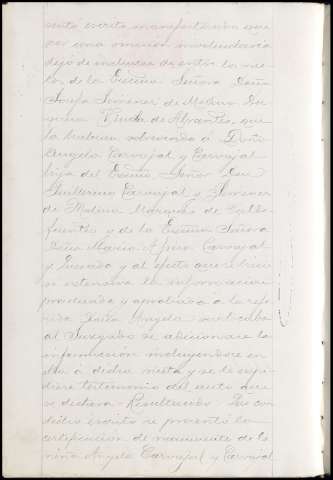 sentó escrito, manifestando que
por una omisión involuntaria
dejó de incluirse de entre los nie-
tos, de la Excma Señora Doña
Josefa Jimenez de Molina Du-
quesa Viuda de Abrantes, que
la habían sobrevivido á Doña
Angela Carvajal y Carvajal
hija del Excmo Señor Don
Guillermo Carvajal y Jimenez
de Molina Marqués de
fuentes y de la Excma Señora
Doña Maria Carvajal
y y al efecto que se hicie-
se extensiva la información
practicada y aprobada á la refe-
rida Doña Angela suplicaba
al Juzgado se adicionare la
información incluyendose en
ella á dicha nieta y se le expi-
diere testimonio del auto que
se dictara = Resultando: Que con
dicho escrito se presentó la
certificación de nacimiento de la
niña Angela Carvajal y Carvajal